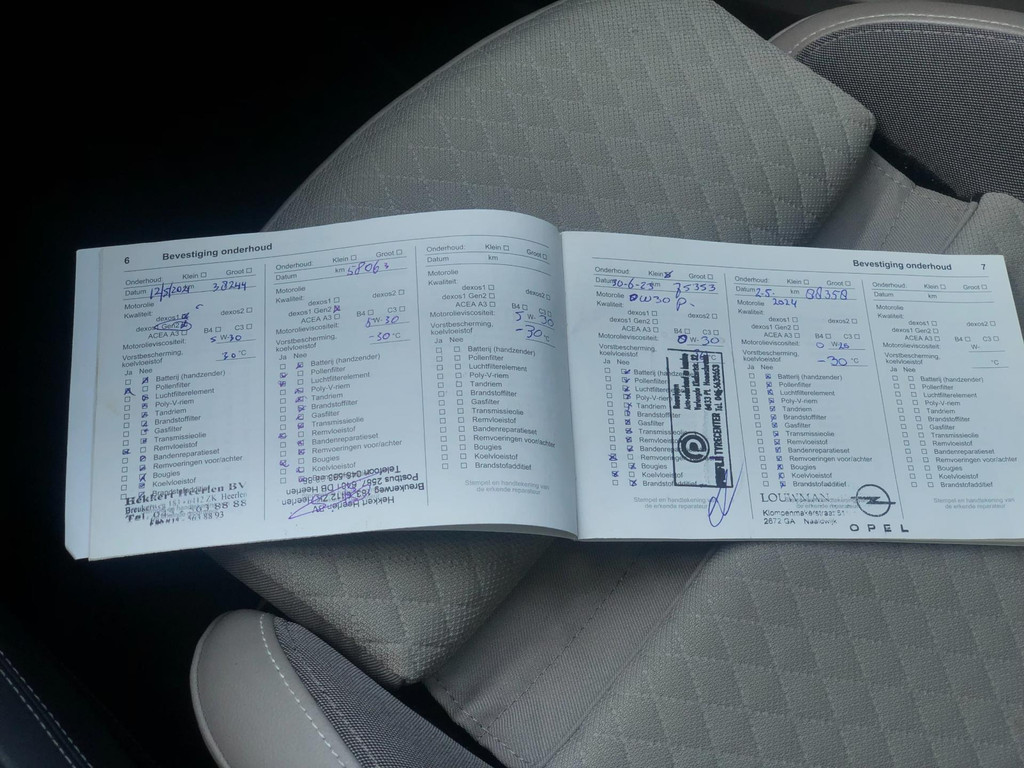 6 Bevestiging onderhoud
Onderhoud: Klein Groot
Datum 12/5/2021 km 38244
Motorolie
Kwaliteit: dexos1 dexos2
dexos1 Gen2
ACEA A3 B4 C3
Motorolieviscositeit: 5 W-30
Vorstbescherming, koelvloeistof 30 °C
Ja Nee
Batterij (handzender)
Pollenfilter
Luchtfilterelement
Poly-V-riem
Tandriem
Brandstoffilter
Gasfilter
Transmissieolie
Remvloeistof
Bandenreparatieset
Remvoeringen voor/achter
Bougies
Koelvloeistof
Brandstofadditief
Hekkert Heerlen BV
Onderhoud: Klein Groot
Datum km 58063
Motorolie
Kwaliteit: dexos1 dexos2
dexos1 Gen2
ACEA A3 B4 C3
Motorolieviscositeit: 5 W-30
Vorstbescherming, koelvloeistof -30 °C
Ja Nee
Batterij (handzender)
Pollenfilter
Luchtfilterelement
Poly-V-riem
Tandriem
Brandstoffilter
Gasfilter
Transmissieolie
Remvloeistof
Bandenreparatieset
Remvoeringen voor/achter
Bougies
Koelvloeistof
Hekkert Heerlen BV
Onderhoud: Klein Groot
Datum km
Motorolie
Kwaliteit: dexos1 dexos2
dexos1 Gen2
ACEA A3 B4
Motorolieviscositeit: 5 W-30
Vorstbescherming, koelvloeistof -30 °C
Ja Nee
Batterij (handzender)
Pollenfilter
Luchtfilterelement
Poly-V-riem
Tandriem
Brandstoffilter
Gasfilter
Transmissieolie
Remvloeistof
Bandenreparatieset
Remvoeringen voor/achter
Bougies
Koelvloeistof
Brandstofadditief
Stempel en handtekening van
de erkende reparateur
Bevestiging onderhoud 7
Onderhoud: Klein Groot
Datum 30-6-23 75353
Motorolie 0W30 P.
Kwaliteit: dexos1 dexos2
dexos1 Gen2
ACEA A3 B4 C3
Motorolieviscositeit: 0 W-30
Vorstbescherming, koelvloeistof
Ja Nee
Batterij (handzender)
Pollenfilter
Luchtfilterelement
Poly-V-riem
Tandriem
Brandstoffilter
Gasfilter
Transmissieolie
Remvloeistof
Bandenreparatieset
Remvoeringen
Bougies
Koelvloeistof
Brandstofadditief
TYRECENTER
Onderhoud: Klein Groot
Datum 2-5- km 88358
Motorolie 2024
Kwaliteit: dexos1 dexos2
dexos1 Gen2
ACEA A3 B4 C3
Motorolieviscositeit: 0 W-
Vorstbescherming, koelvloeistof -30 °C
Ja Nee
Batterij (handzender)
Pollenfilter
Luchtfilterelement
Poly-V-riem
Tandriem
Brandstoffilter
Gasfilter
Transmissieolie
Remvloeistof
Bandenreparatieset
Remvoeringen voor/achter
Bougies
Koelvloeistof
Brandstofadditief
LOUWMAN
Klompenmakerstraat 51
2672 GA Naaldwijk
OPEL
Onderhoud: Klein Groot
Datum km
Motorolie
Kwaliteit: dexos1 dexos2
dexos1 Gen2
ACEA A3 B4 C3
Motorolieviscositeit: W-
Vorstbescherming, koelvloeistof °C
Ja Nee
Batterij (handzender)
Pollenfilter
Luchtfilterelement
Poly-V-riem
Tandriem
Brandstoffilter
Gasfilter
Transmissieolie
Remvloeistof
Bandenreparatieset
Remvoeringen voor/achter
Bougies
Koelvloeistof
Brandstofadditief
Stempel en handtekening van
de erkende reparateur